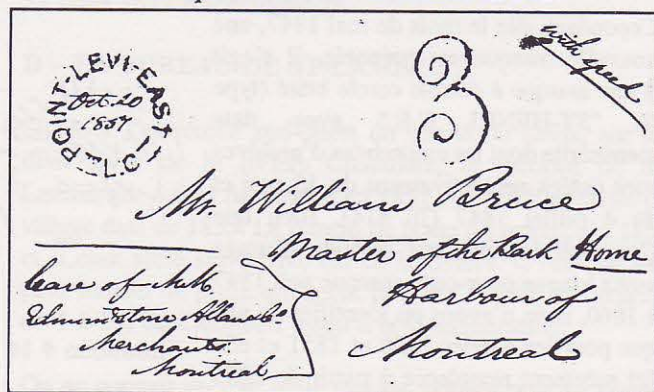 POINT-LEVI-EAST L.C.
Oct. 20
1857
3
with speed
Mr. William Bruce
Master of the Bark Home
Harbour of
Montreal
Care of
Edmondstone Allan & Co.
Merchants
Montreal